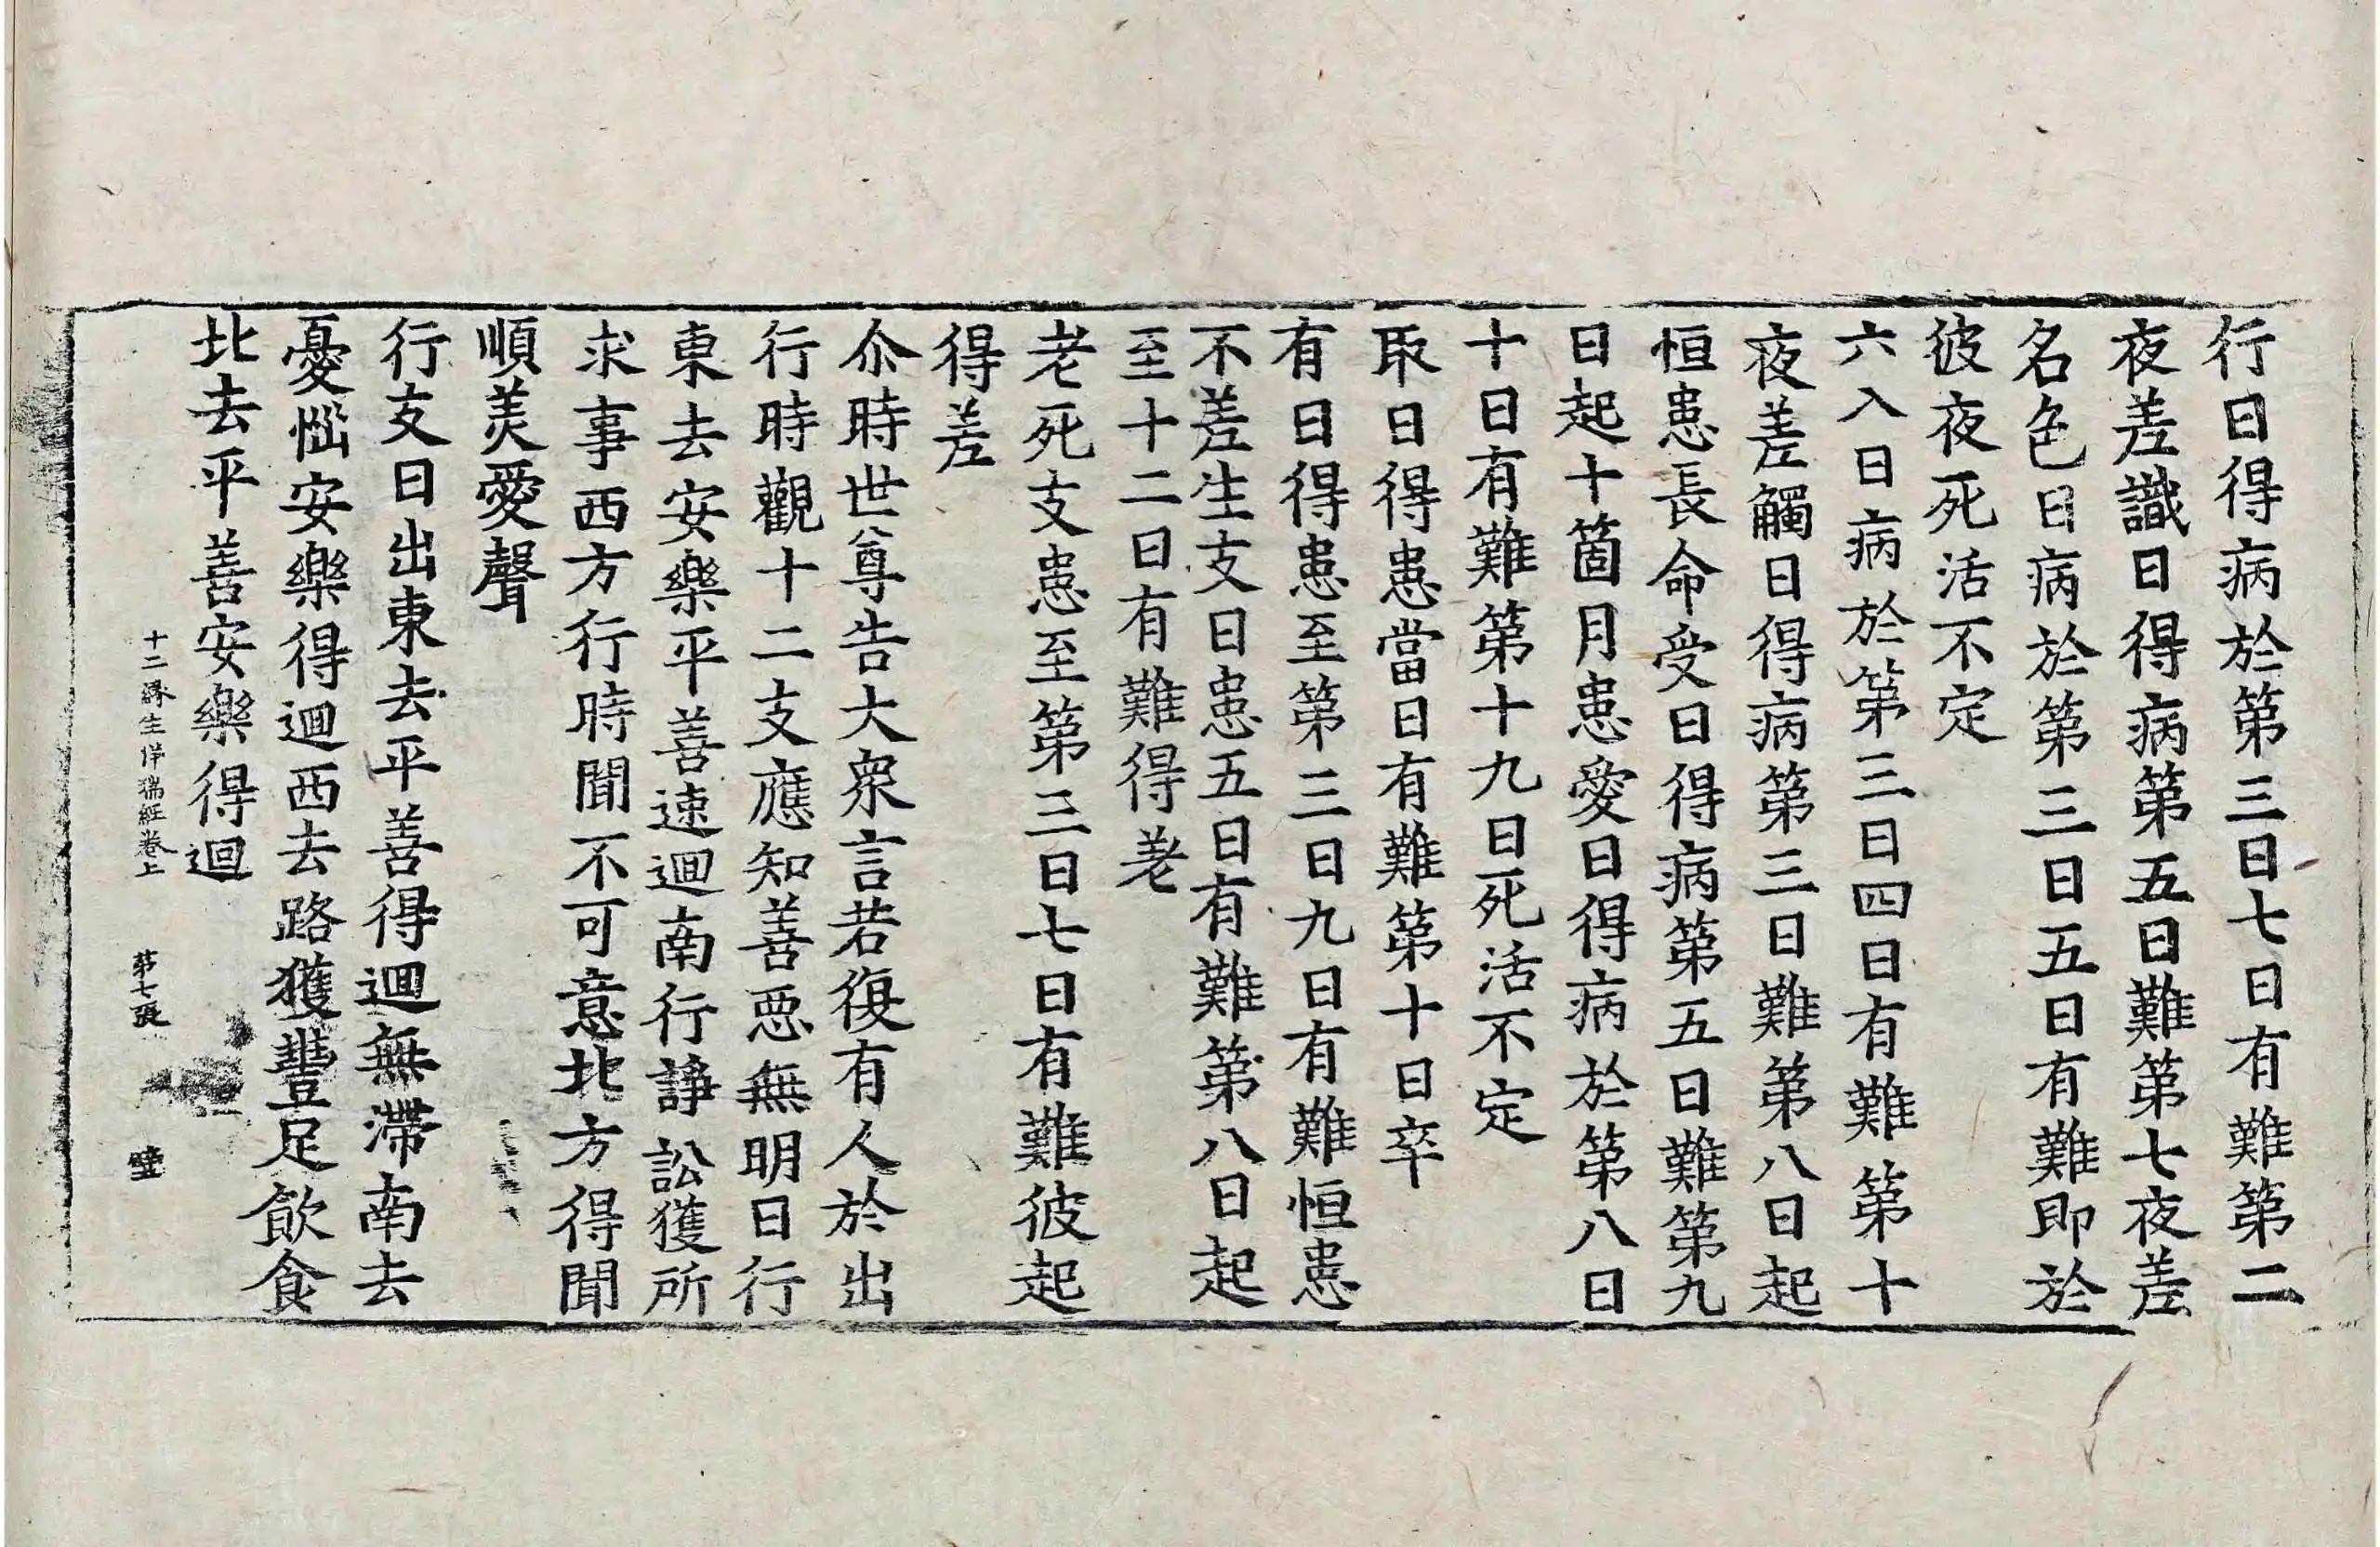 行日得病於第三日七日有難第二
夜差識日得病第五日難第七夜差
名色日病於第三日五日有難即於
彼夜死活不定
六入日病於第三日四日有難第十
夜差觸日得病第三日難第八日起
恒患長命受日得病第五日難第九
日起十箇月患愛日得病於第八日
十日有難第十九日死活不定
取日得患當日有難第十日卒
有日得患至第三日九日有難恒患
不差生支日患五日有難第八日起
至十二日有難得差
老死支患至第三日七日有難彼起
得差
尒時世尊告大衆言若復有人於出
行時觀十二支應知善惡無明日行
東去安樂平善速迴南行諍訟獲所
求事西方行時聞不可意北方得聞
順美愛聲
行支日出東去平善得迴無滯南去
憂惱安樂得迴西去路獲豐足飲食
北去平善安樂得迴
十二緣生祥瑞經卷上 第七張